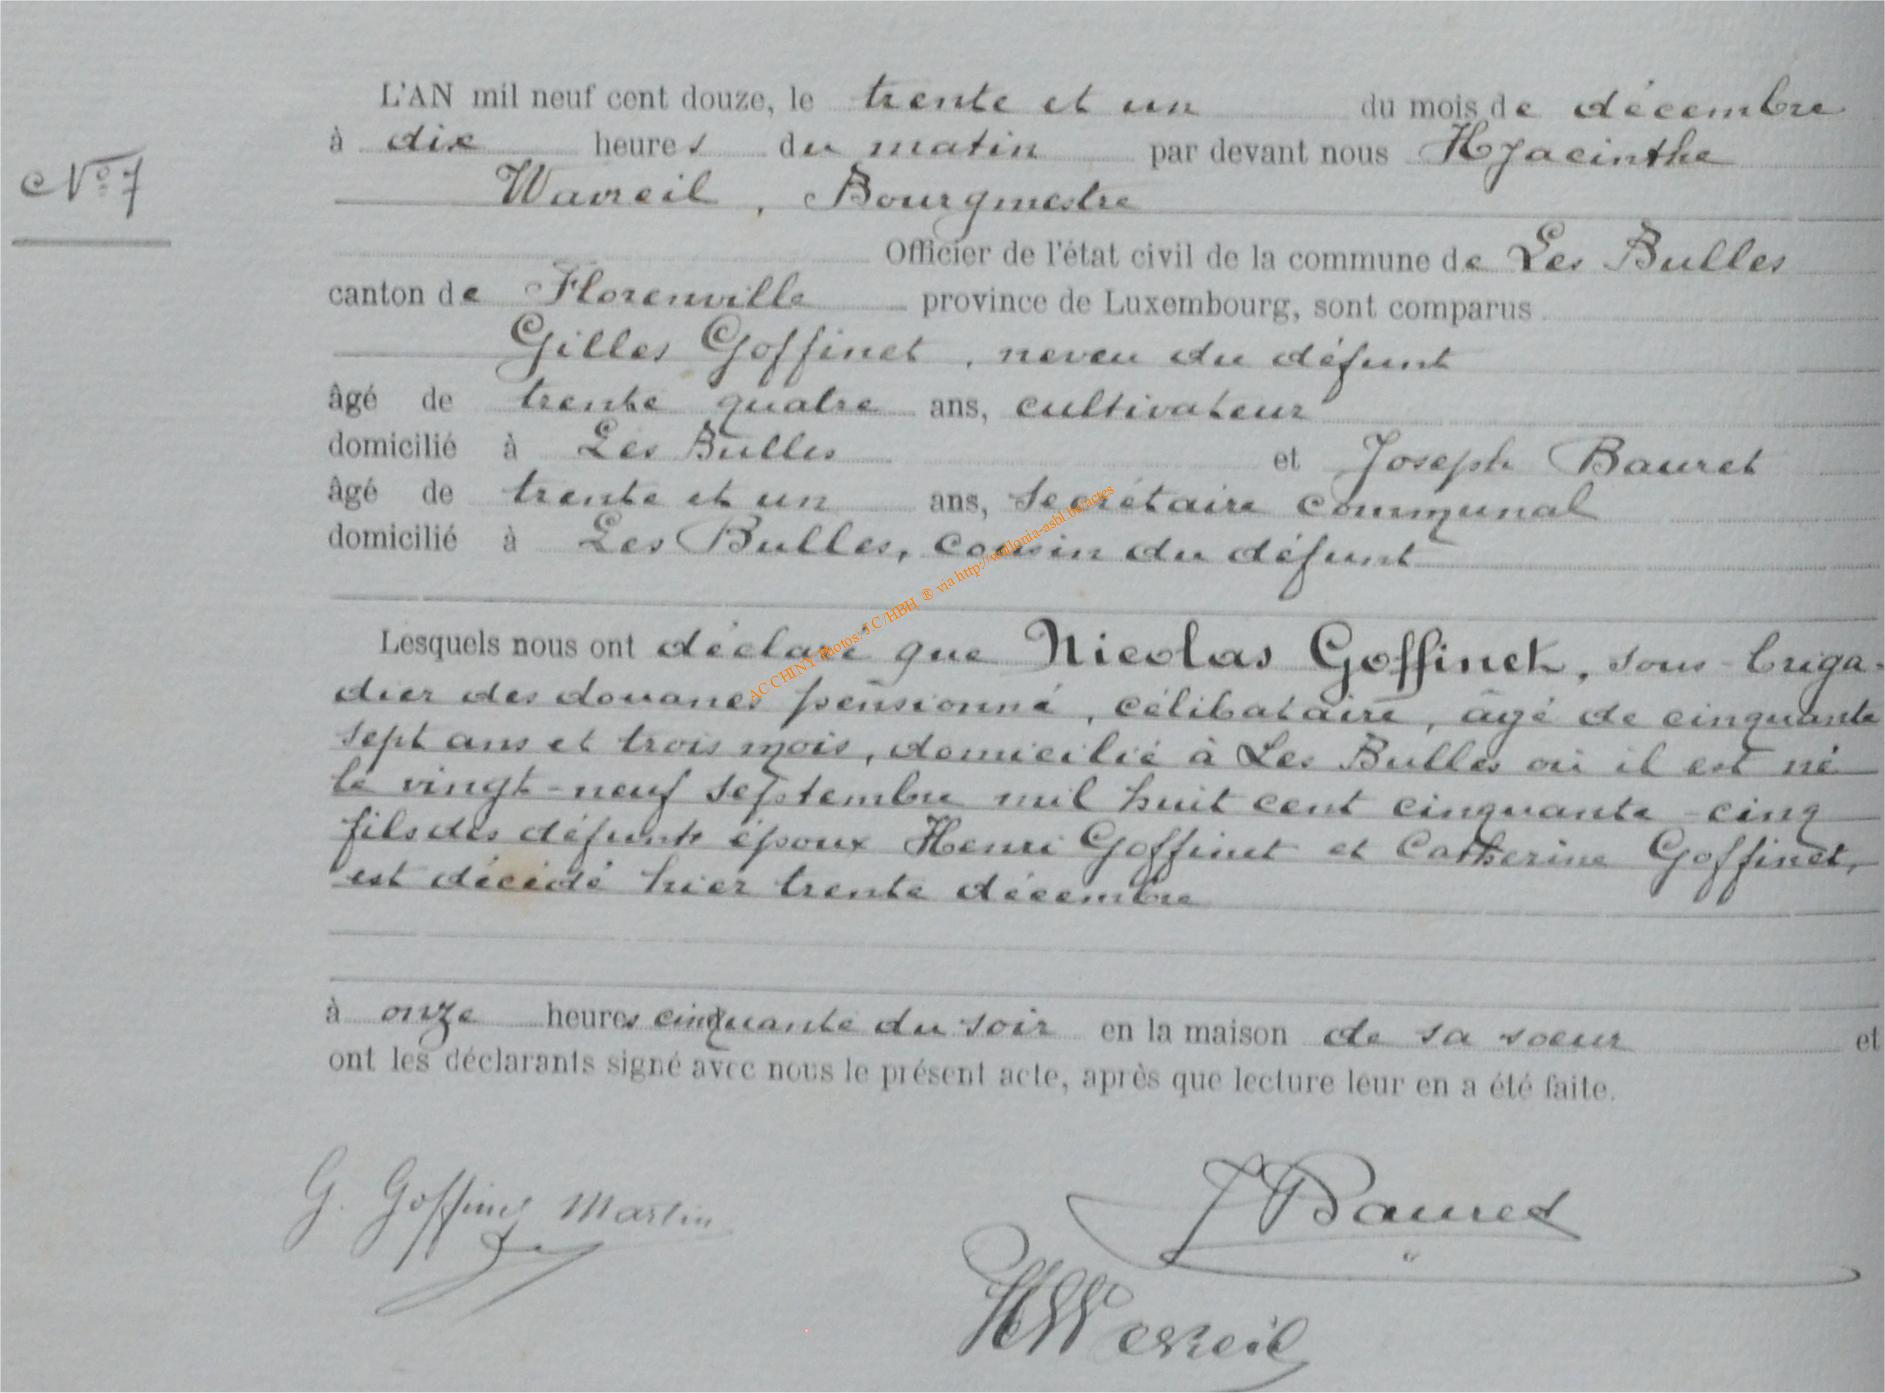 L'AN mil neuf cent douze, le trente et un du mois de décembre
à dix heures du matin par devant nous Hyacinthe
N° 7
Wavreil, Bourgmestre
Officier de l'état civil de la commune de Les Bulles
canton de Florenville province de Luxembourg, sont comparus
Gilles Goffinet, neveu du défunt
âgé de trente quatre ans, cultivateur
domicilié à Les Bulles et Joseph Bauret
âgé de trente et un ans, secrétaire communal
domicilié à Les Bulles, cousin du défunt
ACCHINY Photos: J.C/HBH ® via http://wallonia-asbl.be/actes
Lesquels nous ont déclaré que Nicolas Goffinet, sous-briga-
dier des douanes pensionné, célibataire, âgé de cinquante
sept ans et trois mois, domicilié à Les Bulles où il est né
le vingt-neuf septembre mil huit cent cinquante-cinq
fils des défunts époux Henri Goffinet et Catherine Goffinet,
est décédé hier trente décembre
à onze heures cinquante du soir en la maison de sa soeur et
ont les déclarants signé avec nous le présent acte, après que lecture leur en a été faite.
G. Goffinet Martin
J Bauret
HWavreil